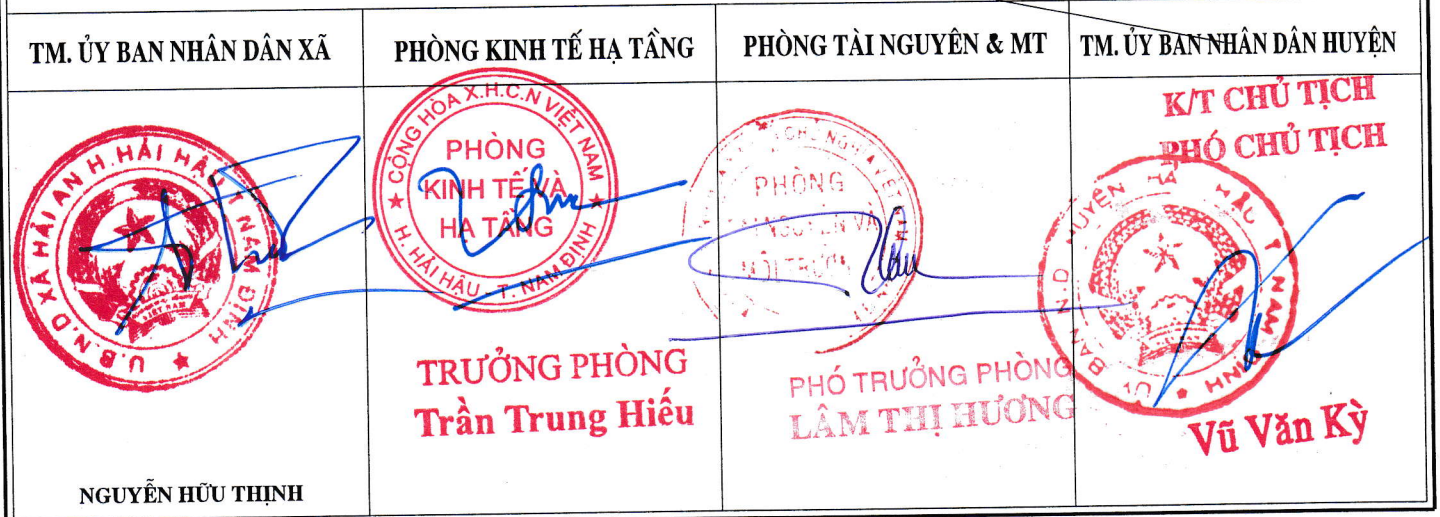 TM. ỦY BAN NHÂN DÂN XÃ
PHÒNG KINH TẾ HẠ TẦNG
PHÒNG TÀI NGUYÊN & MT
TM. ỦY BAN NHÂN DÂN HUYỆN
U.B.N.D XÃ HẢI AN H.HẢI HẬU T NAM ĐỊNH
NGUYỄN HỮU THỊNH
CỘNG HÒA X.H.C.N VIỆT NAM
PHÒNG
KINH TẾ VÀ
HẠ TẦNG
H. HẢI HẬU - T. NAM ĐỊNH
TRƯỞNG PHÒNG
Trần Trung Hiếu
PHÒNG
TÀI NGUYÊN VÀ
MÔI TRƯỜNG
PHÓ TRƯỞNG PHÒNG
LÂM THỊ HƯƠNG
K/T CHỦ TỊCH
PHÓ CHỦ TỊCH
ỦY BAN N.D HUYỆN HẢI HẬU T NAM ĐỊNH
Vũ Văn Kỳ